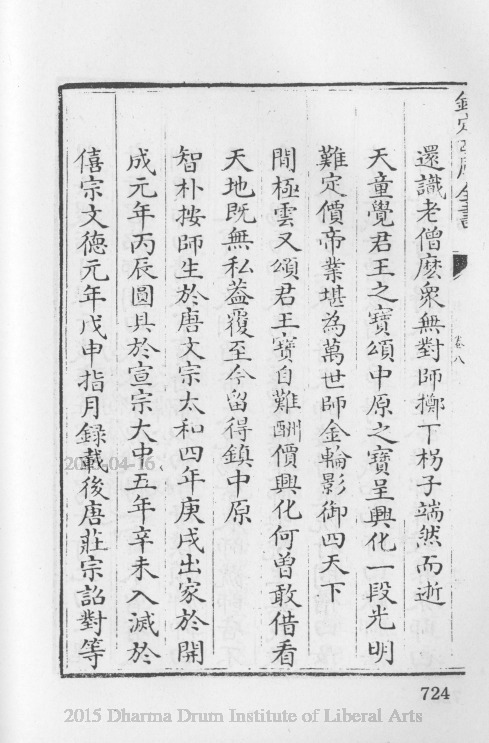 欽定四庫全書
卷八
還識老僧麽衆無對師擲下柺子端然而逝
天童覺君王之寶頌中原之寶呈興化一段光明
難定價帝業堪為萬世師金輪影御四天下
間極雲又頌君王寶自難酬價興化何曽敢借看
天地既無私葢覆至今留得鎮中原
智朴按師生於唐文宗太和四年庚戌出家於開
成元年丙辰圓具於宣宗大中五年辛未入滅於
僖宗文德元年戊申指月録載後唐莊宗詔對等
724
2015 Dharma Drum Institute of Liberal Arts